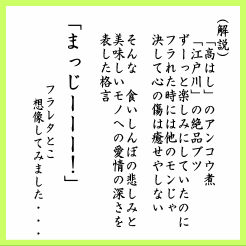 (解説)
「高はし」のアンコウ煮
「江戸川」の絶品プツ
ずーっと楽しみにしていたのに
フラれた時には他のモンじゃ
決して心の傷は癒せやしない
そんな 食いしんぼの悲しみと
美味しいモノへの愛情の深さを
表した格言
「まっじーーー!」
フラレタとこ
想像してみました・・・